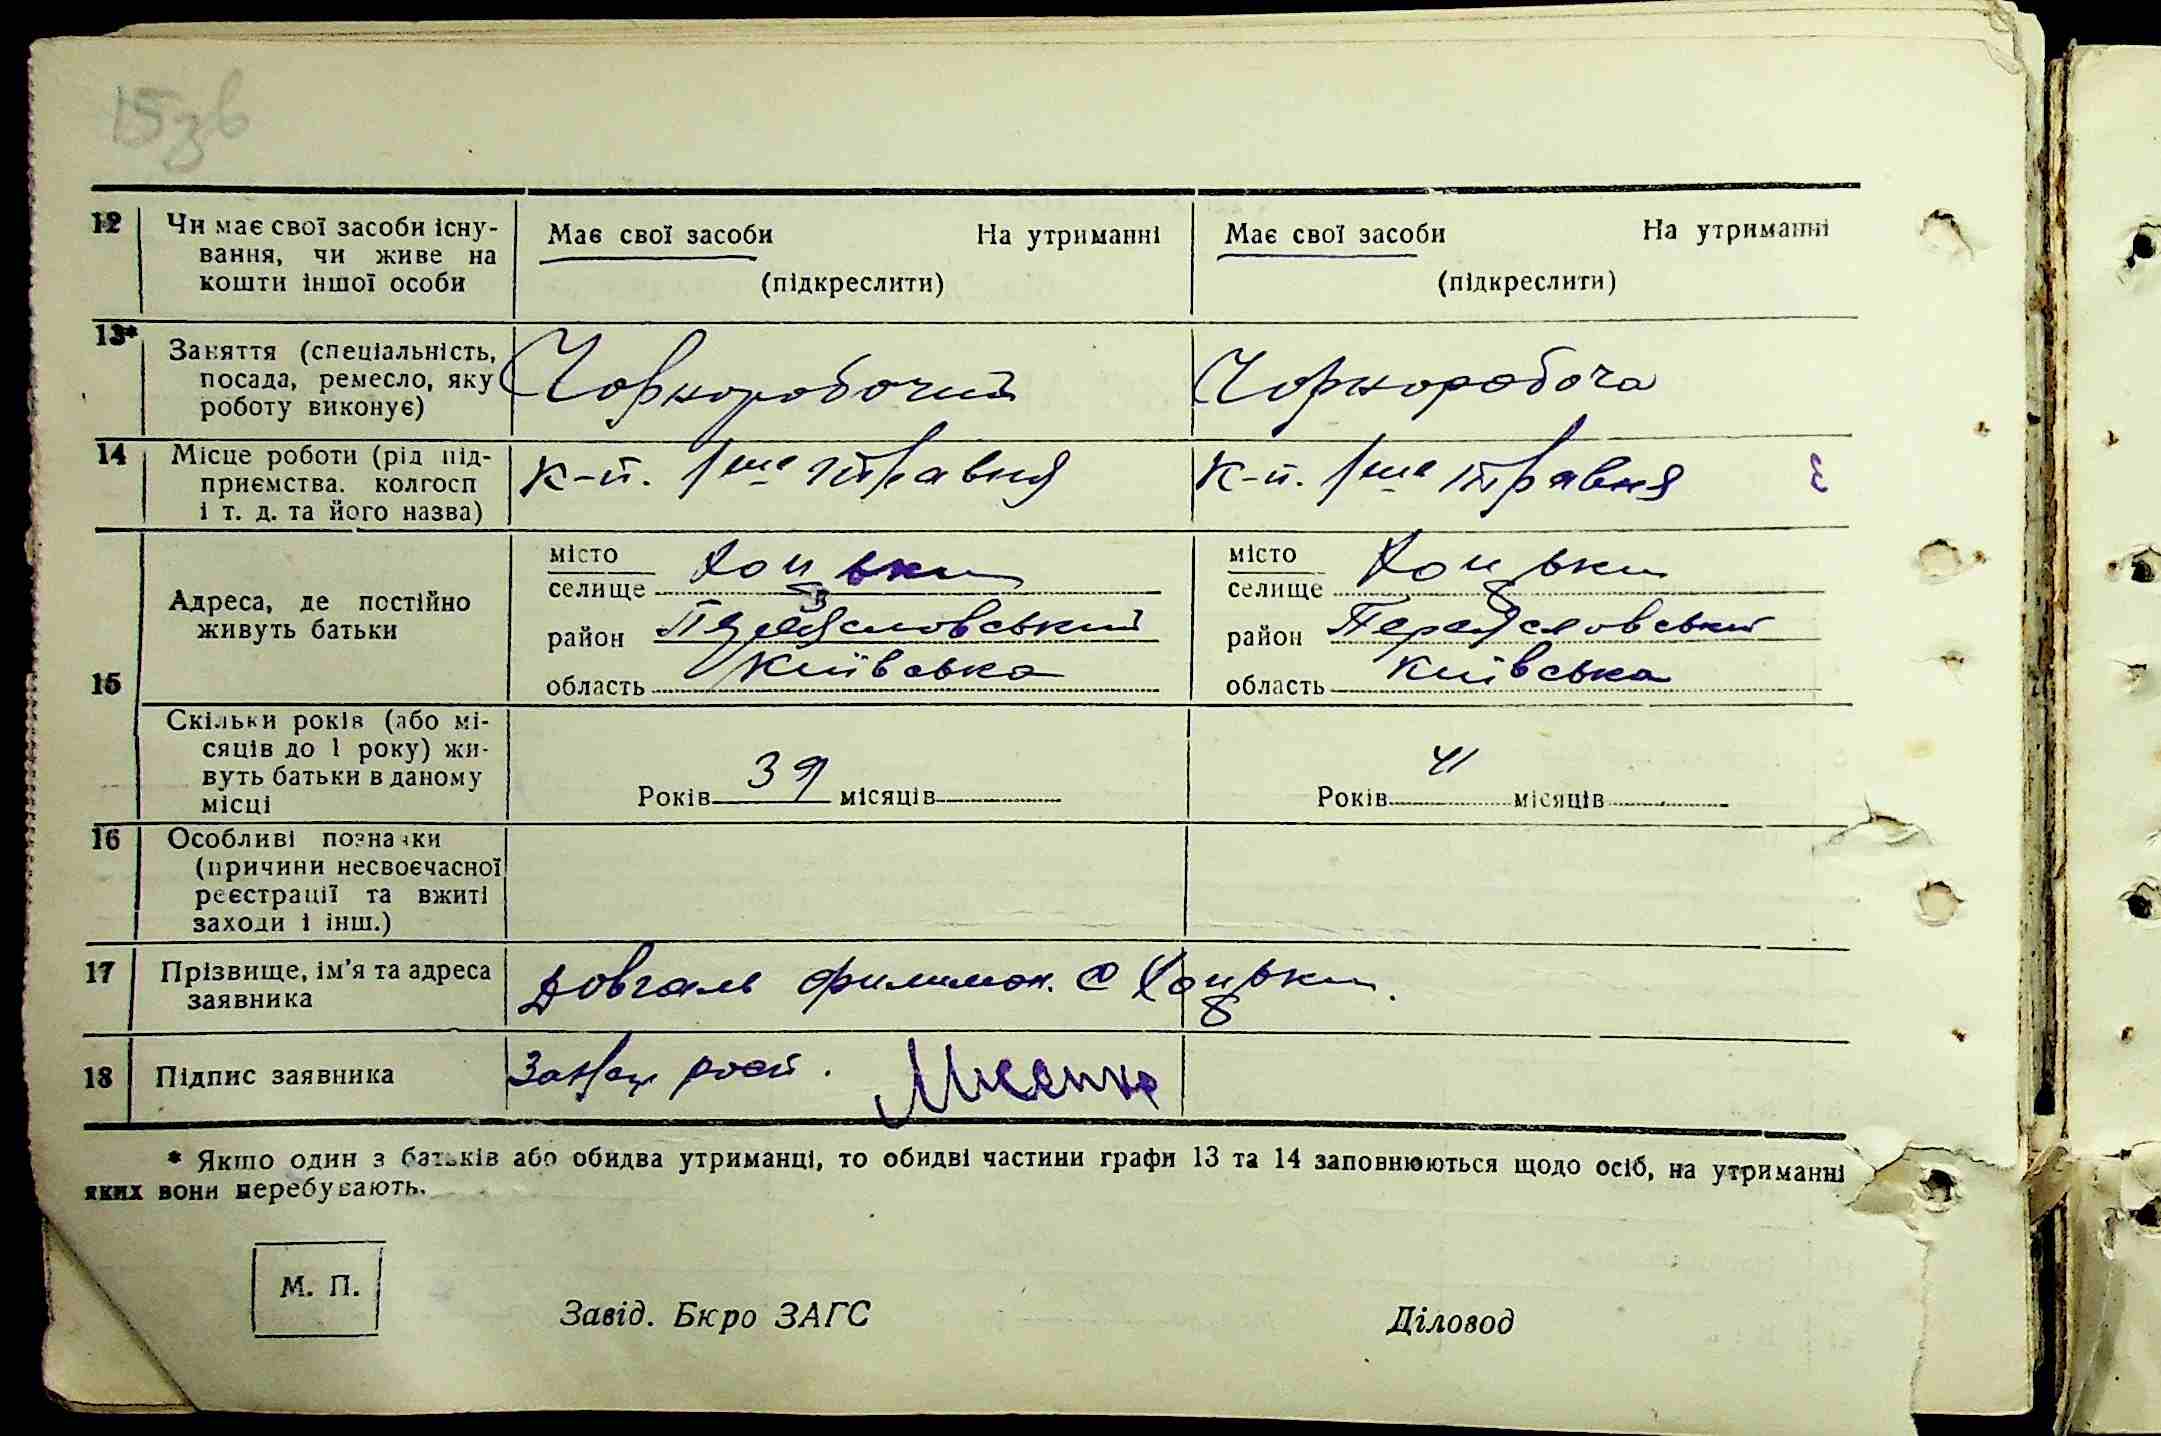 15зв
12 Чи має свої засоби існу-
вання, чи живе на
кошти іншої особи
Має свої засоби На утриманні
(підкреслити)
Має свої засоби На утриманні
(підкреслити)
13* Заняття (спеціальність,
посада, ремесло, яку
роботу виконує)
Чорноробочий
Чорноробоча
14 Місце роботи (рід під-
приємства. колгосп
і т. д. та його назва)
к-п. 1ше травня
к-п. 1ше травня
15 Адреса, де постійно
живуть батьки
місто
селище Хоцьки
район Переяславський
область Київська
місто
селище Хоцьки
район Переясловський
область Київська
Скільки років (або мі-
сяців до 1 року) жи-
вуть батьки в даному
місці
Років 39 місяців
Років 41 місяців
16 Особливі позначки
(причини несвоєчасної
реєстрації та вжиті
заходи і інш.)
17 Прізвище, ім'я та адреса
заявника
Довгаль Филимон. с Хоцьки.
18 Підпис заявника
* Якшо один з батьків або обидва утриманці, то обидві частини графи 13 та 14 заповнюються щодо осіб, на утриманні
яких вони перебувають.
М. П.
Завід. Бюро ЗАГС
Діловод